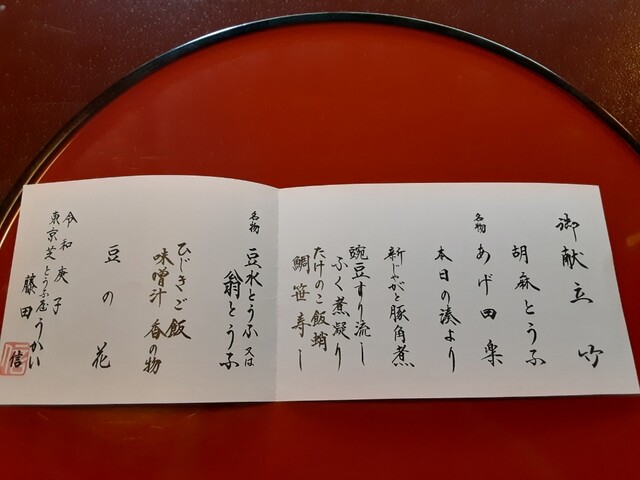 御献立 竹
胡麻とうふ
名物 あげ田楽
本日の湊より
新じゃがと豚角煮
豌豆すり流し
ふく煮凝り
たけのこ飯蛸
鯛笹寿し
名物 豆水とうふ 又は
翁とうふ
ひじきご飯
味噌汁 香の物
豆の花
令和庚子
東京芝とうふ屋うかい
藤田
信